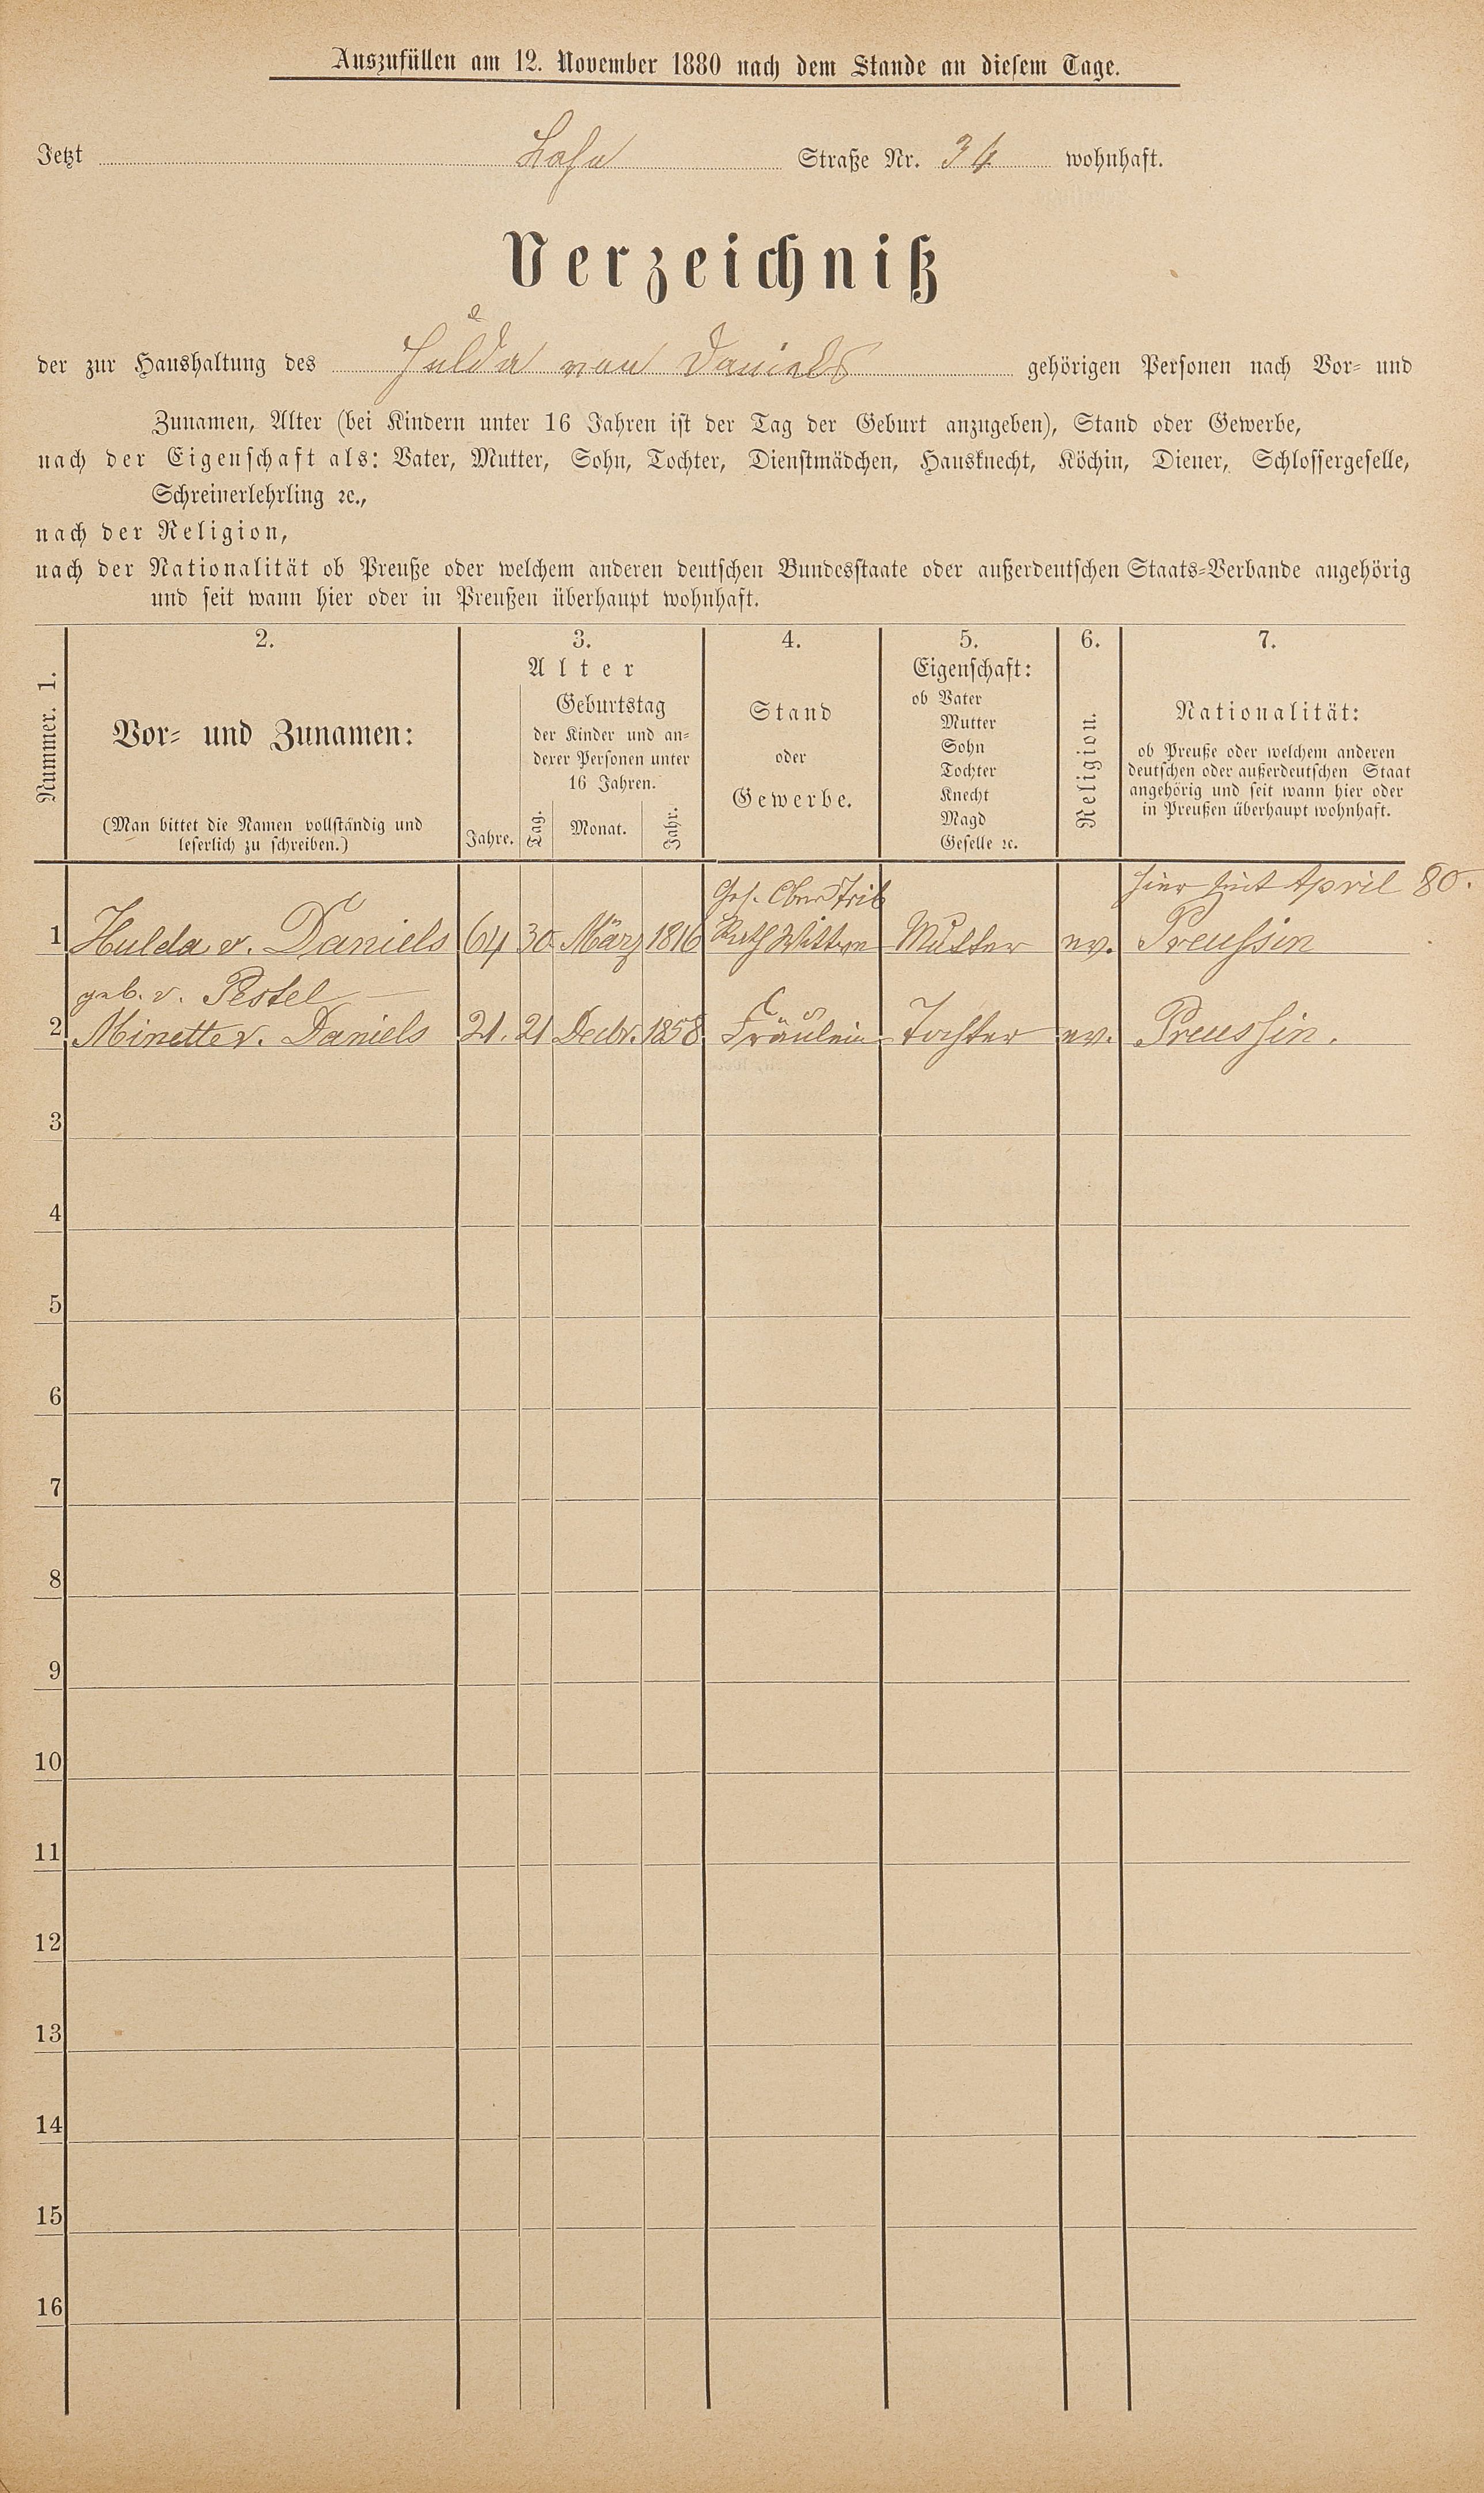 Auszufüllen am 12. November 1880 nach dem Stande an diesem Tage.
Jetzt Hohe Straße Nr. 34 wohnhaft.
Verzeichniß
der zur Haushaltung des Hulda von Daniels gehörigen Personen nach Vor- und
Zunamen, Alter (bei Kindern unter 16 Jahren ist der Tag der Geburt anzugeben), Stand oder Gewerbe,
nach der Eigenschaft als: Vater, Mutter, Sohn, Tochter, Dienstmädchen, Hausknecht, Köchin, Diener, Schlossergeselle,
Schreinerlehrling ꝛc.,
nach der Religion,
nach der Nationalität ob Preuße oder welchem anderen deutschen Bundesstaate oder außerdeutschen Staats-Verbande angehörig
und seit wann hier oder in Preußen überhaupt wohnhaft.
Nummer. 1.
2.
Vor- und Zunamen:
(Man bittet die Namen vollständig und
leserlich zu schreiben.)
3.
Alter
Jahre.
Geburtstag
der Kinder und an-
derer Personen unter
16 Jahren.
Tag. Monat. Jahr.
4.
Stand
oder
Gewerbe.
5.
Eigenschaft:
ob Vater
Mutter
Sohn
Tochter
Knecht
Magd
Geselle ꝛc.
6.
Religion.
7.
Nationalität:
ob Preuße oder welchem anderen
deutschen oder außerdeutschen Staat
angehörig und seit wann hier oder
in Preußen überhaupt wohnhaft.
Geh. Ober Trib hier seit April 80.
1 Hulda v. Daniels 64 30 März 1816 Rath Wittwe Mutter ev. Preussin
geb. v. Pestel
2 Minette v. Daniels 21. 21 Decbr. 1858 Fräulein Tochter ev. Preussin.
3
4
5
6
7
8
9
10
11
12
13
14
15
16